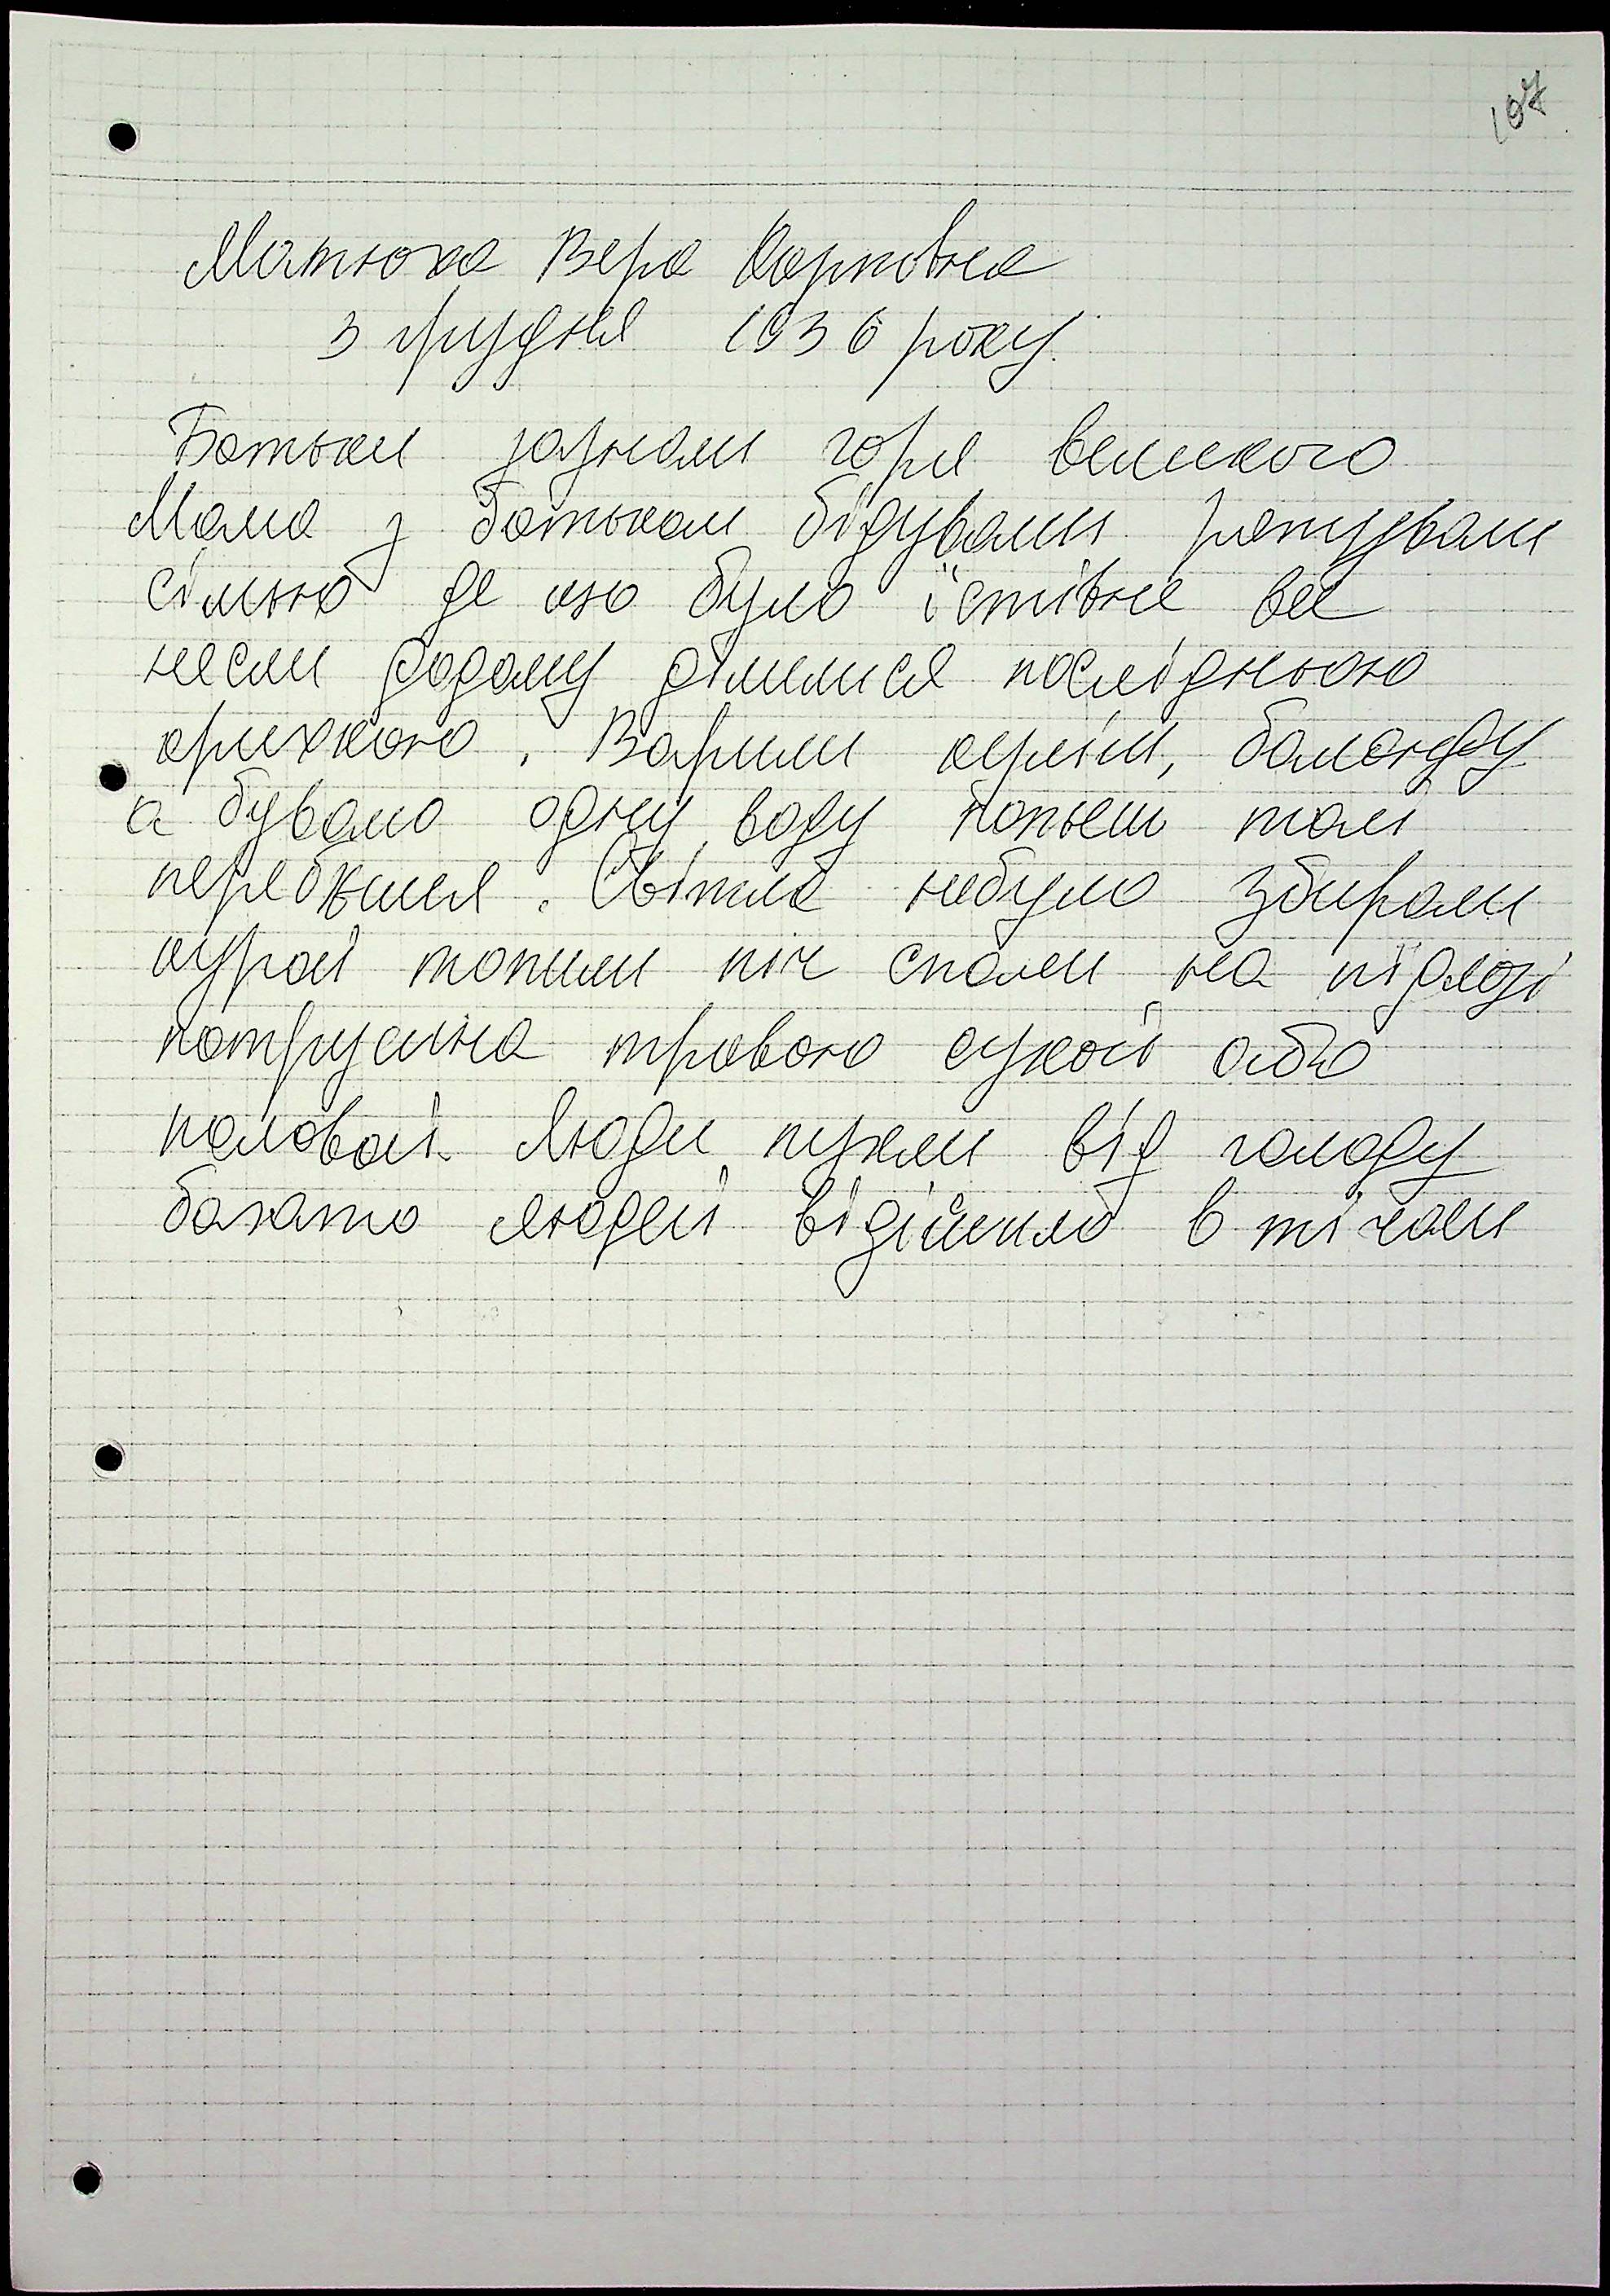 107
Матюха Вера Карповна
3 грудня 1936 року.
Батьки зазнали горя великого
Мама з батьком бідували рятували
сімью де що було їстівне все
несли додому ділилися послідньою
крихкою. Варили куліш, баланду
а бувало одну воду попьеш там
перебився. Світла небуло збирали
курай топили піч спали на підлозі
потрусина травою сухой або
половой. Люди пухли від голоду
багато людей відійшло в ті часи